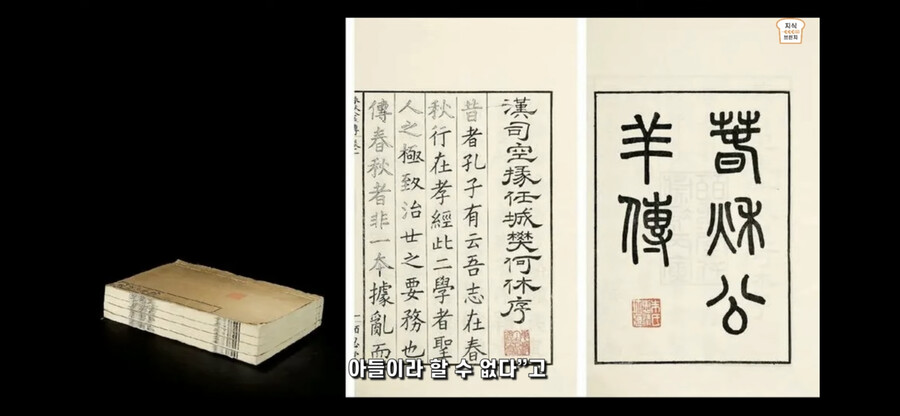 지식
브런치
春秋公
羊傳
漢司空掾任城樊何休序
昔者孔子有云吾志在春
秋行在孝經此二學者聖
人之極致治世之要務也
傳春秋者非一本據亂而
아들이라 할 수 없다"고